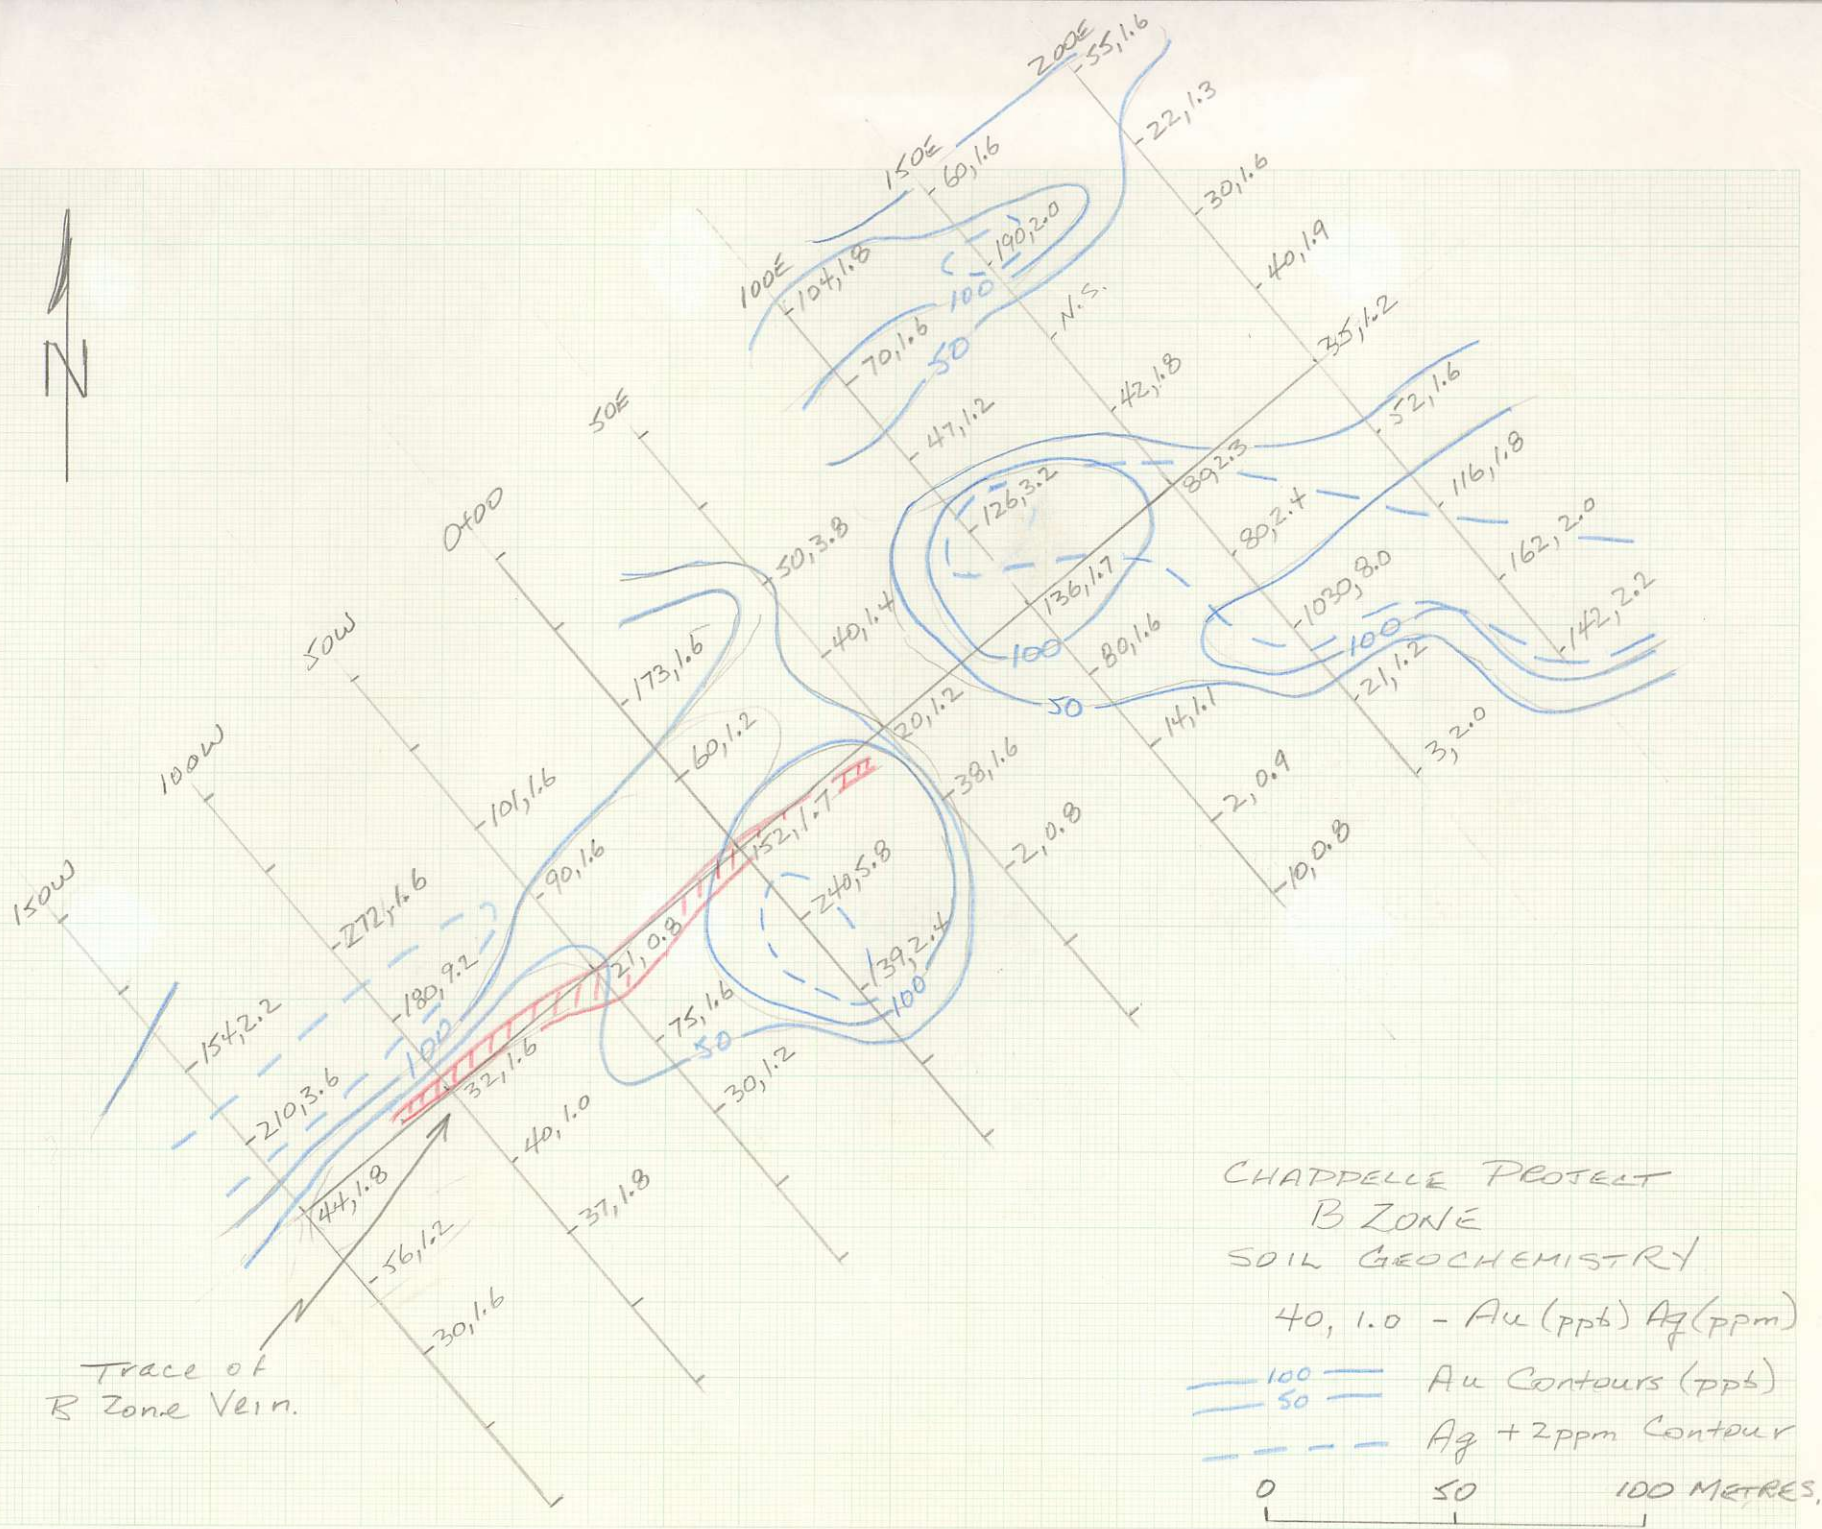 200E
55,1.6
22,1.3
30,1.6
40,1.9
35,1.2
52,1.6
116,1.8
162, 2.0
142, 2.2
150E
60,1.6
190,2.0
N.S.
42,1.8
89,2.3
80,2.4
1030,8.0
21,1.2
3,2.0
100E
104,1.8
70,1.6
47,1.2
126,3.2
136,1.7
80,1.6
14,1.1
2,0.9
10,0.8
50E
50,3.8
40,1.4
20,1.2
38,1.6
2,0.8
0+00
173,1.6
60,1.2
152,1.7
240,5.8
139,2.4
50W
101,1.6
90,1.6
21,0.8
75,1.6
30,1.2
100W
272,1.6
180,9.2
32,1.6
40,1.0
37,1.8
150W
154,2.2
210,3.6
44,1.8
56,1.2
30,1.6
100
50
100
50
100
100
50
100
N
Trace of
B Zone Vein.
CHAPPELLE PROJECT
B ZONE
SOIL GEOCHEMISTRY
40, 1.0 - Au (ppb) Ag (ppm)
100
50
Au Contours (ppb)
Ag +2ppm Contour
0 50 100 METRES.